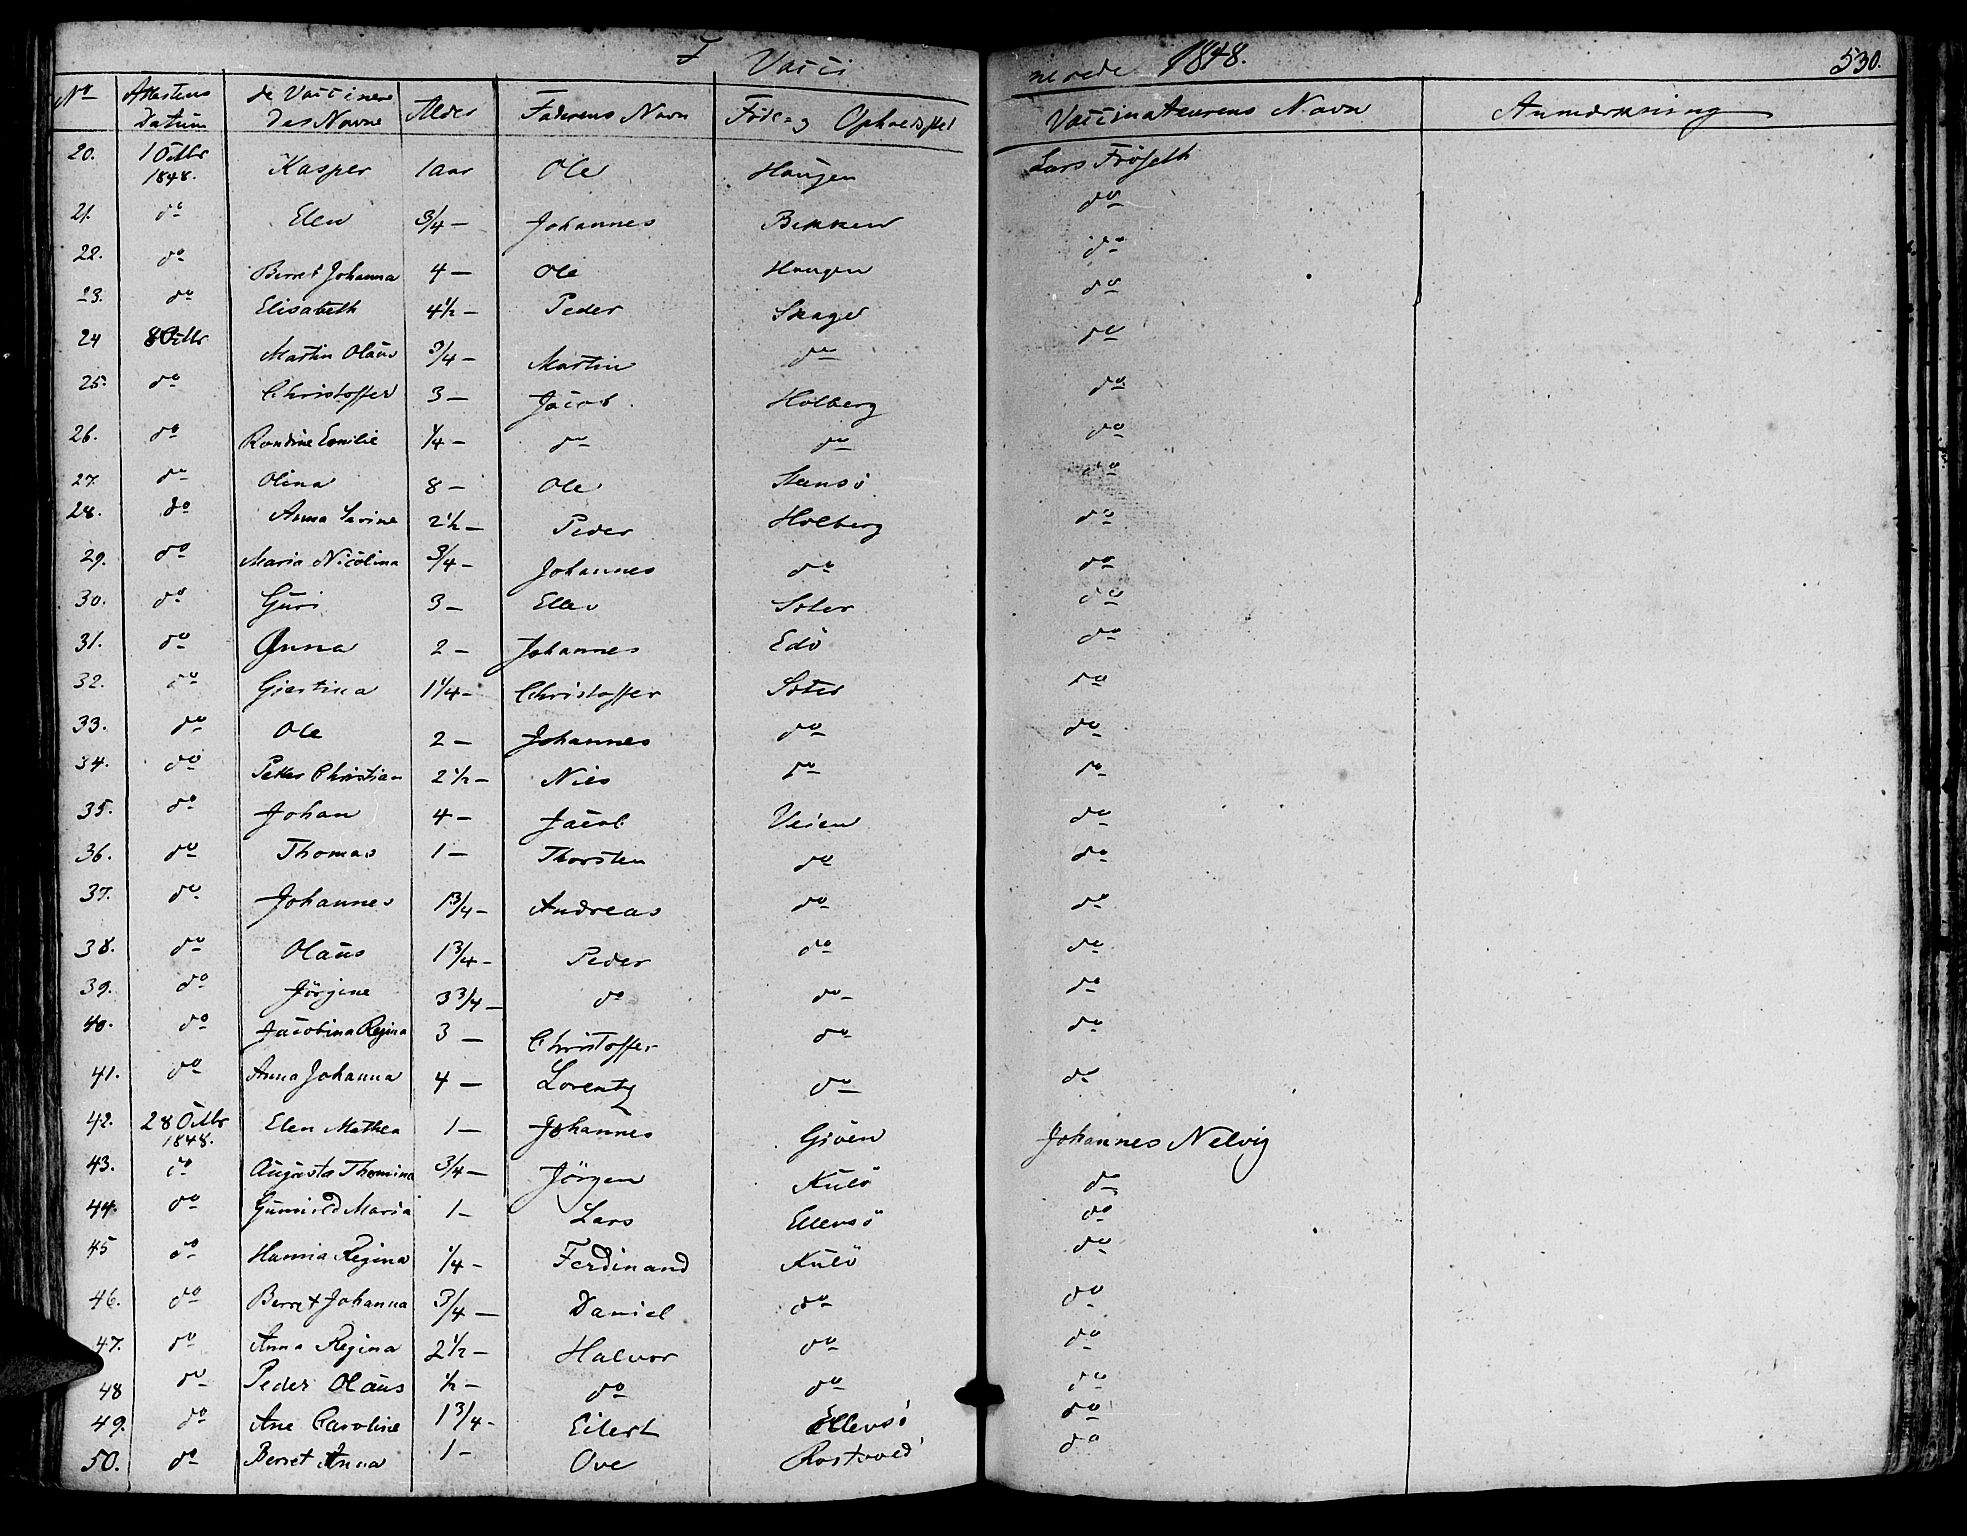 I Vacci nerede 1848. 530.
No Attestens Datum de Vaccinere des Navne Alder Faderens Navn Føde- og Opholdsted Vaccinateurens Navn Anmærkning
20. 1 Octbr 1848. Kasper 1 aar Ole Haugen Lars Fröseth
21. do Elen 3/4 – Johannes Bekken do
22. do Berret Johanna 4 – Ole Haugen do
23. do Elisabeth 4 1/2 – Peder Skager do
24 8 Octbr Martin Olaus 3/4 – Martin do do
25. do Christoffer 3 – Jacob Holberg do
26. do Randine Emilie 1/4 – do do do
27. do Olina 8 – Ole Stensö do
28. do Anna Sarine 2 1/2 – Peder Holberg do
29. do Maria Nicolina 3/4 – Johannes do do
30. do Guri 3 – Ellev Soter do
31. do Anna 2 – Johannes Edö do
32. do Giertina 1 1/4 – Christoffer Soter do
33. do Ole 2 – Johannes do do
34. do Petter Christian 2 1/2 – Niels do do
35. do Johan 4 – Jacob Veien do
36. do Thomas 1 – Thorsten do do
37. do Johannes 1 3/4 – Andreas do do
38. do Olaus 1 3/4 – Peder do do
39. do Jörgine 3 3/4 – do do do
40. do Jacobina Regina 3 – Christoffer do do
41. do Anna Johanna 4 – Lorentz do do
42. 28 Octbr 1848. Elen Mathea 1 – Johannes Giöen Johannes Nelvig
43. do Augusta Thomina 3/4 – Jörgen Kulö do
44. do Gunild Maria 1 – Lars Ellensö do
45 do Hanna Regina 1/4 – Ferdinand Kulö do
46. do Berret Johanna 3/4 – Daniel do do
47. do Anna Regina 2 1/2 – Halvor do do
48 do Peder Olaus 1/2 – do do do
49. do Ane Caroline 1 3/4 – Eilert Ellensö do
50. do Berret Anna 1 – Ove Rostoved do